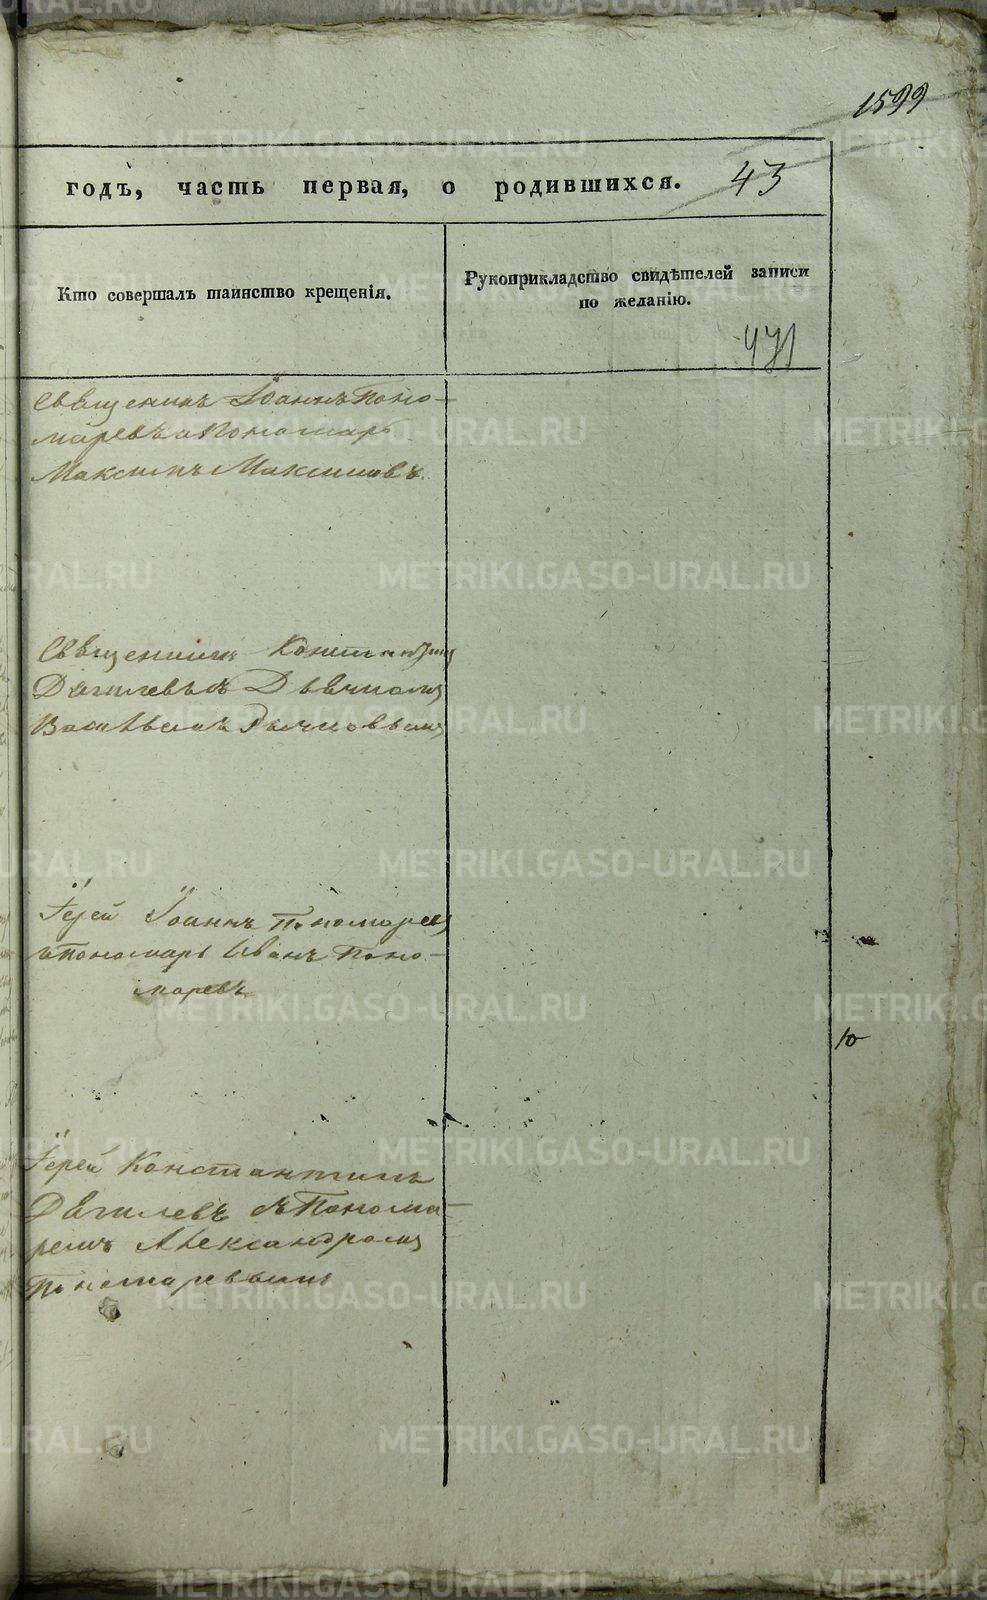 1599
годъ, часть первая, о родившихся. 43
Кто совершалъ таинство крещенія.
Рукоприкладство свидѣтелей записи
по желанію.
471
Священникъ Іоаннъ Поно-
маревъ и Пономарь
Максимъ Максимовъ.
Священникъ Константинъ
Дягилевъ съ Дьячкомъ
Васильемъ Рычковымъ
Іерей Іоаннъ Пономаревъ
и Пономарь Иванъ Поно-
маревъ
Ю
Іерей Константинъ
Дягилевъ съ Понома-
ремъ Александромъ
Пономаревымъ
METRIKI.GASO-URAL.RU